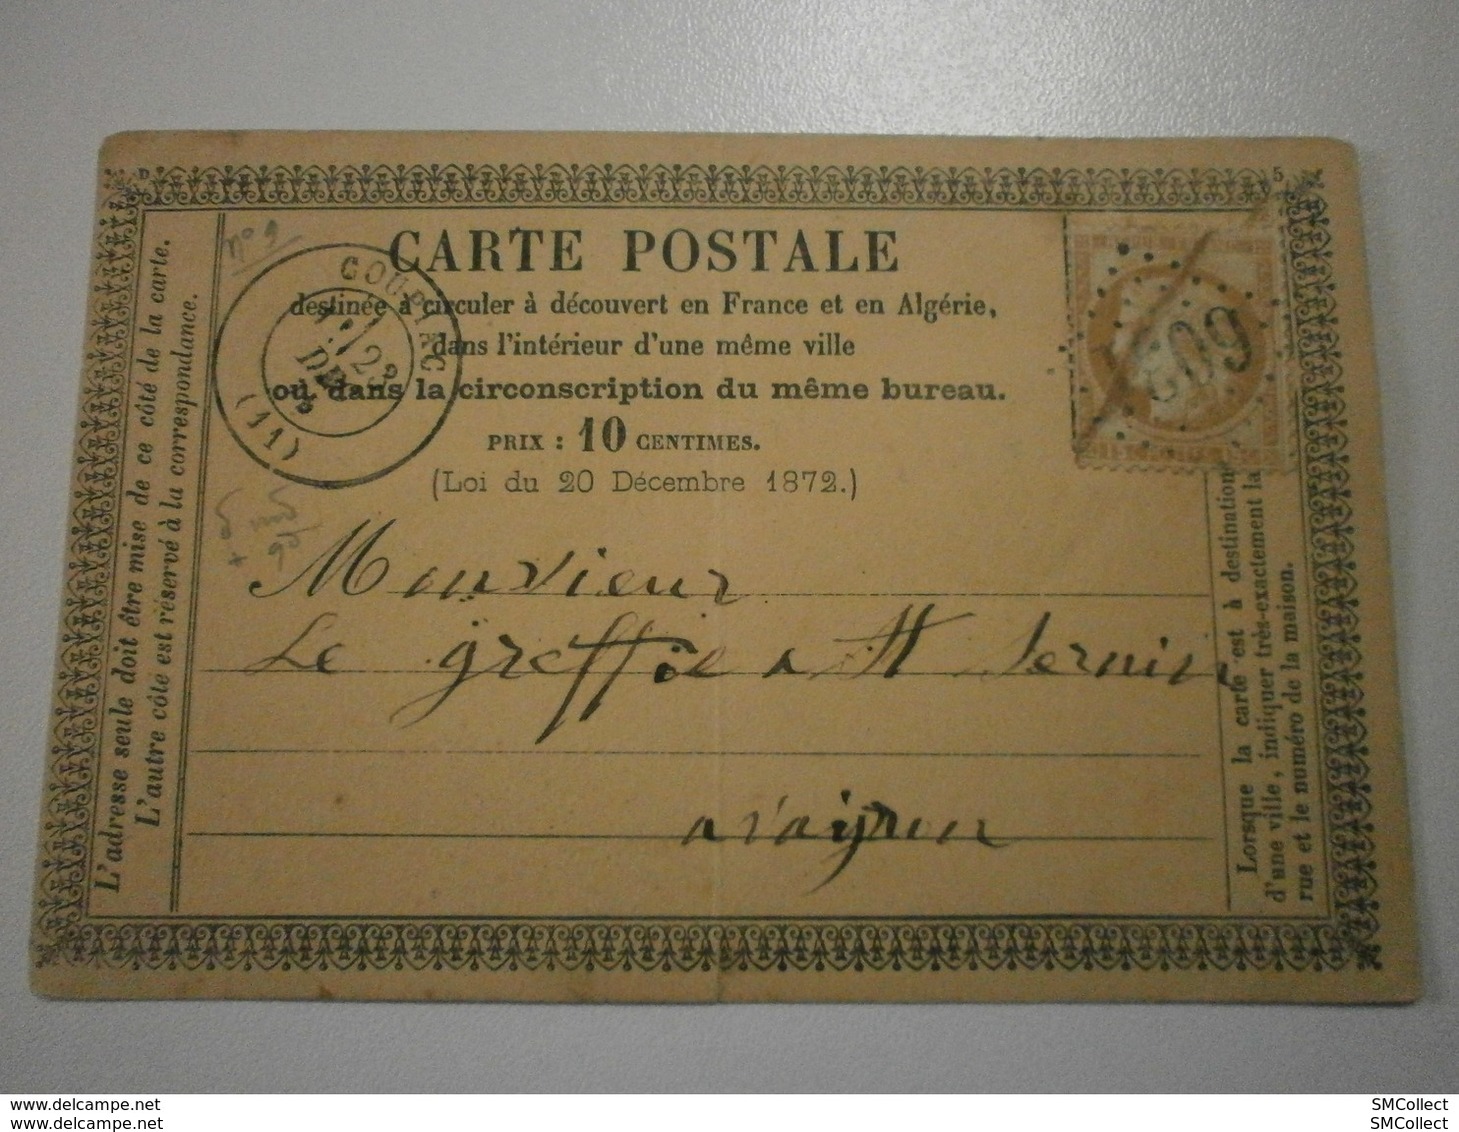 D
5
CARTE POSTALE
destinée à circuler à découvert en France et en Algérie,
dans l'intérieur d'une même ville
ou dans la circonscription du même bureau.
PRIX : 10 CENTIMES.
(Loi du 20 Décembre 1872.)
COUPIAC
DEC
(11)
L'adresse seule doit être mise de ce côté de la carte.
L'autre côte est réservé à la correspondance.
Monsieur
Le greffie a St Sernin
avayron
Lorsque la carte est à destination
d'une ville, indiquer très-exactement la
rue et le numéro de la maison.
www.delcampe.net
www.delcampe.net
SMCollect
SMCollect